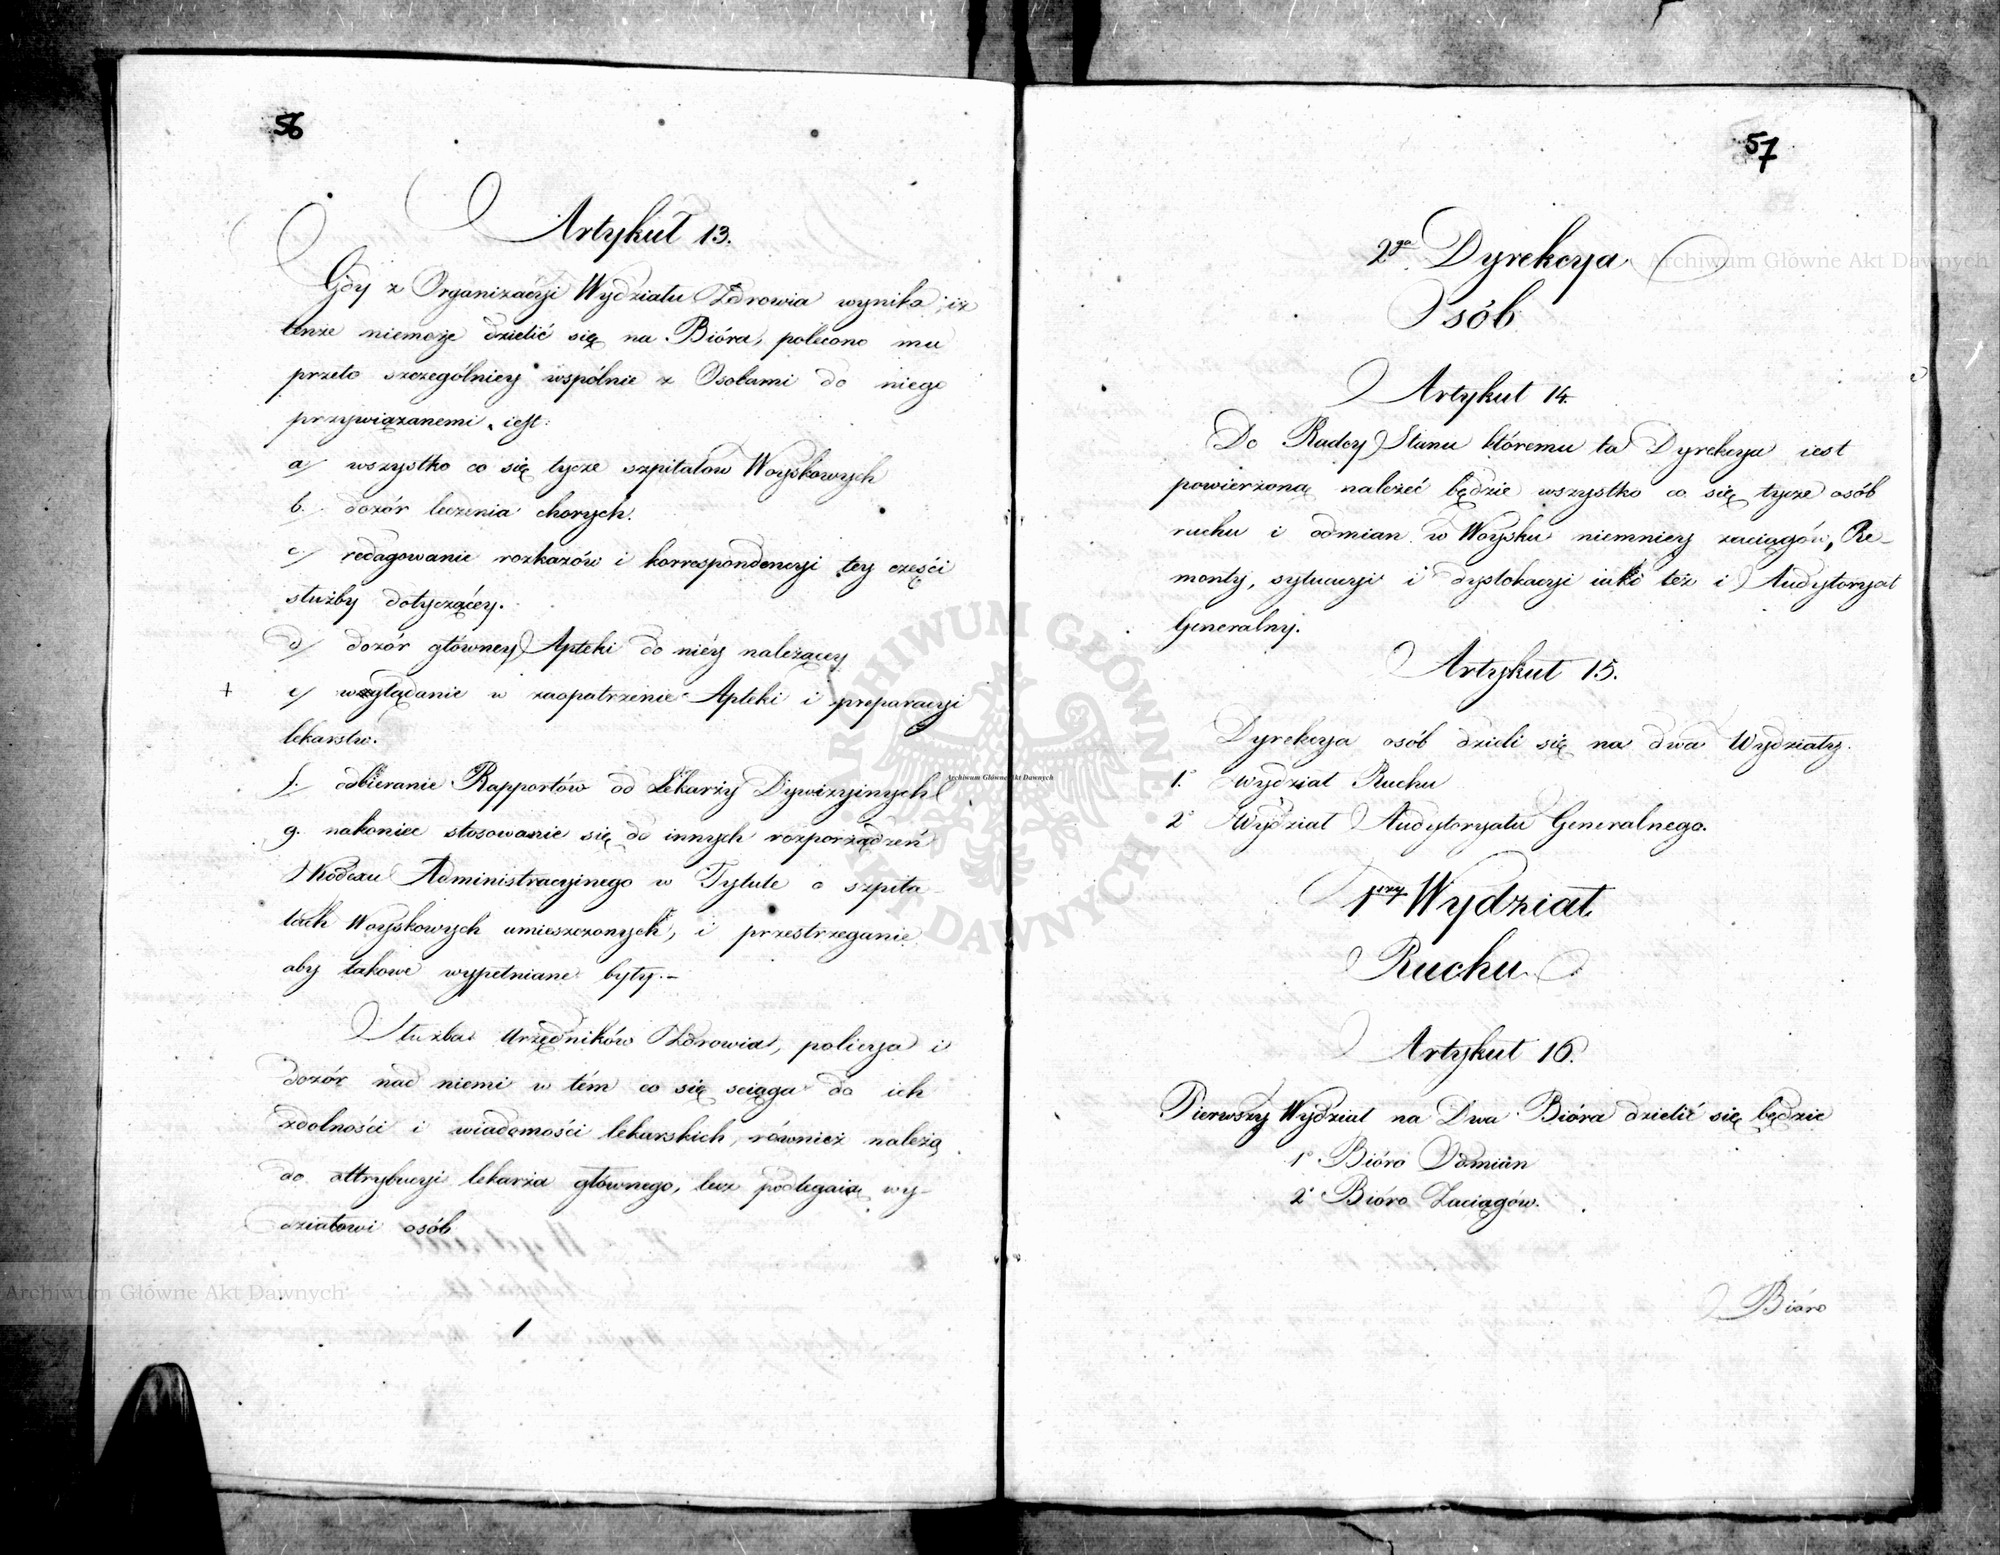 56
Artykuł 13.
Gdy z Organizacyi Wydziału Zdrowia wynika, iż
tenże niemoże dzielić się na Bióra, polecono mu
przeto szczególniey wspólnie z Osobami do niego
przywiązanemi iest:
a/ wszystko co się tycze szpitalow Woyskowych
b. dozór leczenia chorych.
c/ redagowanie rozkazów i korrespondencyi tey części
służby dotyczącéy.
d/ dozór główney Apteki do niéy należącey
+ e/ wzglądanie w zaopatrzenie Apteki i preparacyi
lekarstw.
f. odbieranie Rapportów od Lekarzy Dywizyinych
g. nakoniec stosowanie się do innych rozporządzeń
Kodexu Administracyinego w Tytule o szpita-
lach Woyskowych umieszczonych, i przestrzeganie
aby takowe wypełniane były.-
Służba Urzędników Zdrowia, policya i
dozór nad niemi w tém co się sciąga do ich
zdolności i wiadomości lekarskich, również należą
do attrybucyi lekarza głównego, lecz podlegaią wy-
działowi osób
57
2ga Dyrekcya
Osób
Artykuł 14.
Do Radcy Stanu któremu ta Dyrekcya iest
powierzoną należeć będzie wszystko co się tycze osób
ruchu i odmian w Woysku niemniey zaciągów, Re-
monty, sytuacyi i dyslokacyi iako też i Audytoryat
Generalny.
Artykuł 15.
Dyrekcya osób dzieli się na dwa Wydziały.
1° Wydział Ruchu
2° Wydział Audytoryatu Generalnego.
1wszy Wydział
Ruchu
Artykuł 16.
Pierwszy Wydział na Dwa Bióra dzielić się będzie
1° Bióro Odmian
2° Bióro Zaciągów.
Bióro
Archiwum Główne Akt Dawnych
Archiwum Główne Akt Dawnych
Archiwum Główne Akt Dawnych
ARCHIWUM GŁÓWNE AKT DAWNYCH